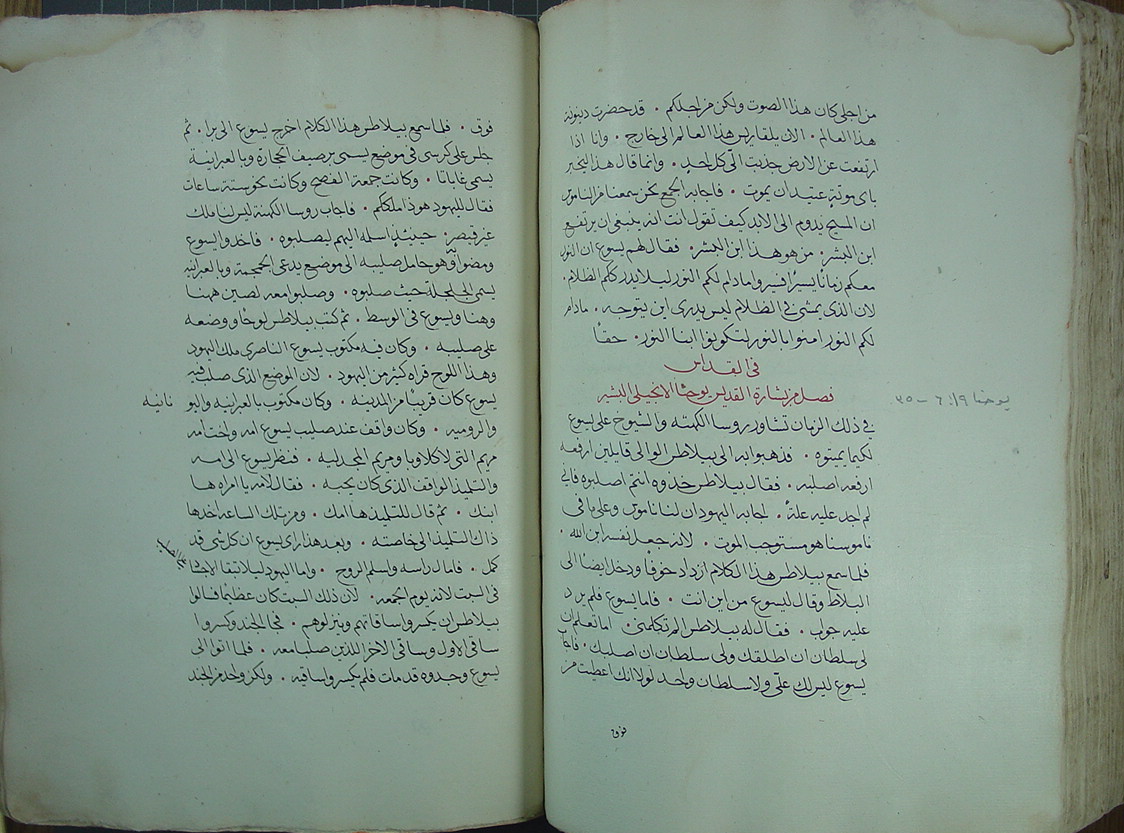 من اجلي كان هذا الصوت ولكن من اجلكم . قد حضرت دينونة
هذا العالم . الان يلقا ريس هذا العالم الي خارج . وانا اذا
ارتفعت عن الارض جذبت الي كل احد . وانما قال هذا ليخبر
باي موتة عتيد ان يموت . فاجابه الجمع نحن سمعنا من الناموس
ان المسيح يدوم الى الابد كيف تقول انت انه ينبغي ان يرتفع
ابن البشر . من هو هذا ابن البشر . فقال لهم يسوع ان النور
معكم زمانًا يسيرًا فسيروا مادام لكم النور ليلا يدرككم الظلام .
لان الذي يمشي في الظلام ليس يدري اين يتوجه . مادام
لكم النور امنوا بالنور لتكونوا ابنا النور . حقًا
في القداس
فصل من بشارة القديس يوحنا الانجيلي البشير
يوحنا ١٩: ٦ – ٣٥
في ذلك الزمان تشاور روسا الكهنة والشيوخ على يسوع
لكيما يميتوه . فذهبوا به الى بيلاطس الوالي قايلين ارفعه
ارفعه اصلبه . فقال بيلاطس خدوه انتم اصلبوه فاني
لم اجد عليه علةً . اجابه اليهود ان لنا ناموس وعلى ما في
ناموسنا هو مستوجب الموت . لانه جعل نفسه ابن الله .
فلما سمع بيلاطس هذا الكلام ازداد خوفًا ودخل ايضًا الى
البلاط وقال ليسوع من اين انت . فاما يسوع فلم يرد
عليه جواب . فقال له بيلاطس الم تكلمني . اما تعلم ان
لي سلطان ان اطلقك ولي سلطان ان اصلبك . فاجاب
يسوع ليس لك علي ولا سلطان واحد لولا انك اعطيت من
فوق
فوق . فلما سمع بيلاطس هذا الكلام اخرج يسوع الى برا . ثم
جلس على كرسي في موضع يسمى برصيف الحجارة وبالعبرانية
يسمى غاباتا . وكانت جمعة الفصح وكانت نحو ستة ساعات
فقال لليهود هوذا ملككم . فاجاب روسا الكهنة ليس لنا ملك
غير قيصر . حينيذٍ اسلمه اليهم ليصلبوه . فاخدوا يسوع
ومضوا به وهو حامل صليبه الى موضع يدعى الجمجمة وبالعبرانيه
يسمى الجلجلة حيث صلبوه . وصلبوا معه لصين ههنا
وهنا ويسوع في الوسط . ثم كتب بيلاطس لوحًا ووضعه
على صليبه . وكان فيه مكتوب يسوع الناصري ملك اليهود
وهذا اللوح قراه كثير من اليهود . لان الموضع الذي صلب فيه
يسوع كان قريبًا من المدينه . وكان مكتوب بالعبرانيه واليو نانيه
والروميه . وكان واقف عند صليب يسوع امه واخت امه
مريم التي لاكلاوبا ومريم المجدليه . فنظر يسوع الى امه
والتلميذ الواقف الذي كان يحبه . فقال لامه يا امراه ها
ابنك . ثم قال للتلميذ ها امك . ومن تلك الساعه اخدها
ذاك التلميذ الى خاصته . وبعد هذا راى يسوع ان كل شي قد
كمل . فامال راسه واسلم الروح . واما اليهود ليلا تبقا الاجساد
في السبت لانه يوم الجمعه . لان ذلك السبت كان عظيمًا فسالوا
بيلاطس ان يكسروا ساقاتهم وينزلوهم . فجا الجند وكسروا
ساقي الاول وساقي الاخر اللذين صلبا معه . فلما اتوا الى
يسوع وجدوه قد مات فلم يكسروا ساقيه . ولكن واحد من الجند